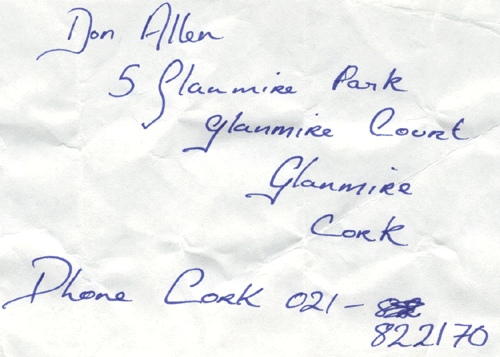 Don Allen
5 Glanmire Park
Glanmire Court
Glanmire
Cork
Phone Cork 021-
822170